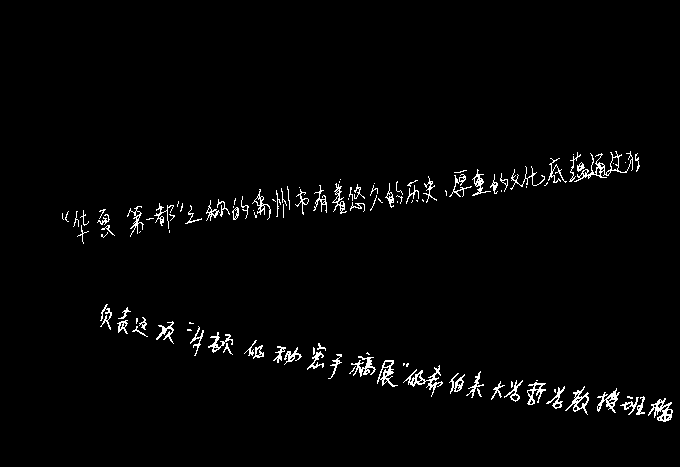 “华夏第一都”之称的禹州市有着悠久的历史、厚重的文化底蕴通过
负责这项“牛顿的秘密手稿展”的希伯来大学哲学教授班